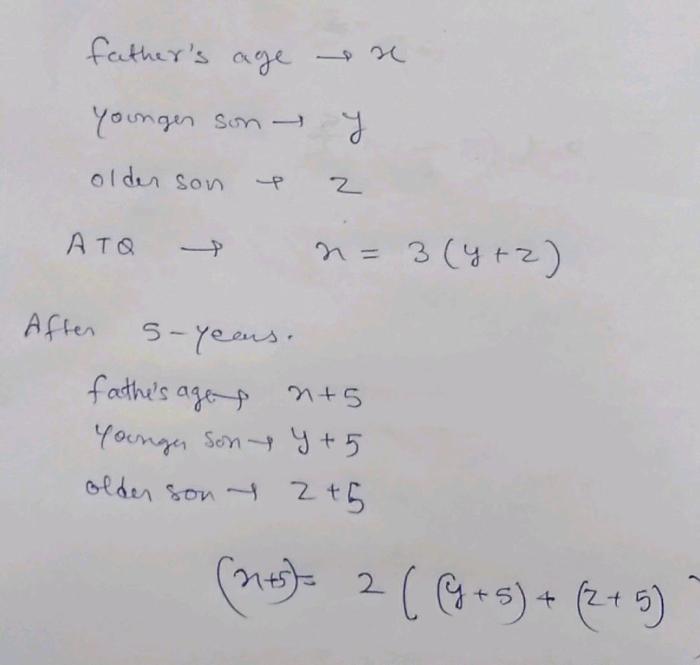 father's age → x
younger son → y
older son → z
ATQ → x = 3(y+z)
After 5-years.
fathe's age → x+5
younger son → y+5
older son → z+5
(x+5)= 2((y+5)+(z+5)